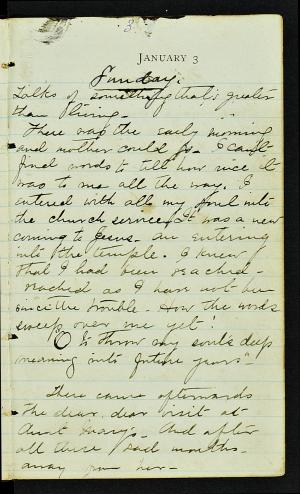 3
JANUARY 3
Sunday.
Talks of something that's greater
than living -
There was the early morning
and mother could go. I can't
find words to tell how nice it
was to me all the way. I
entered with all my soul into
the church service. It was a new
coming to Jesus - an entering
into the temple. I knew
that I had been reached -
reached as I have not been
since the trouble - How the words
sweep over me yet!
"O to throw my soul's deep
meaning into future years" -
There came afterwards
the dear, dear visit at
Aunt Mary's - And after
all these sad months -
away from her -